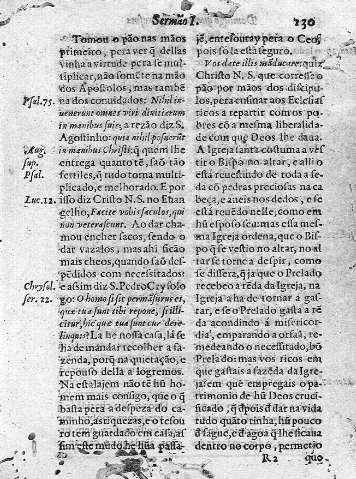 Sermão I.
130
Tomou o pão nas mãos
primeiro, pera ver q̃ dellas
vinha a virtude pera se mul
tiplicar, não somẽte na mão
dos Apostolos, mas tambẽ
Psal. 75.
na dos conuidados: Nihil in
uenerunt omnes viri diuitiarum
in manibus suis: a rezão diz S.
Agostinho: quia nihil posuerũt
Aug.
in manibus Christi; q̃ quem lhe
sup.
entrega quanto tẽ, saõ tão
Psal.
fertiles, q̃ tudo torna multi
plicado, e melhorado. E por
Luc. 12.
isso diz Cristo N. S. no Euan
gelho, Facite vobis saculos, qui
non veterascunt. Ao dar cha
mou encher sacos, sendo o
dar vazalos, mas ahi ficão
mais cheos, quando saõ des
pedidos com necessitados:
Chrysol.
e assim diz S. Pedro Crysolo
ser. 22.
go: O homo si sic permãsurus es,
que tua sunt tibi repone, si illi
citur, hic quę tua sunt cur dere
linquis? La he nossa casa, lá se
ha de mandar recolher a fa
zenda, porq̃ na quietação, e
reponso della a logremos.
Na estalajem não tẽ hũ ho
mem mais consigo, que o q̃
basta pera a despeza do ca
minho, as riquezas, e o tesou
ro tem guardado em casa, as
sim este mũdo he hũa passa-
jẽ, enthesouray pera o Ceo,
pois so la està seguro.
Vos date illis mãducare: quiz
Christo N. S. que corresse o
pão por mãos dos discipu
los, pera ensinar aos Eclesias
ticos a repartir com os po
bres cõ a mesma liberalida
de com que Deos lhe daua.
A Igreja santa costuma a ves
tir o Bispo no altar, e alli o
està reuestindo de toda a se
da cõ pedras preciosas na ca
beça, e aneis nos dedos, e se
està reuẽdo nelle, como em
hũ esposo seu: mas esta mes
ma Igreja ordena, que o Bis
põ q̃ se vestio no altar, no al
tar se torne a despir, como
se dissera, q̃ ja que o Prelado
recebeo a rẽda da Igreja, na
Igreja a ha de tornar a gas
tar, e se o Prelado gasta a rẽ
da acondindo à misericor
dia, emparando a orfaã, re-
medeando o necessitado, bõ
Prelado: mas vos ricos em
que gastais a fazẽda da Igre
ja sem que empregais o pa
trimonio de hũ Deos cruci
ficado, q̃ dpois d̃ dar na vida
tudo quãto tinha, hũ pouco
d̃ sãgue, e d̃ agoa q̃ lhe ficaua
dentro no corpo, permetio
R 2
quo